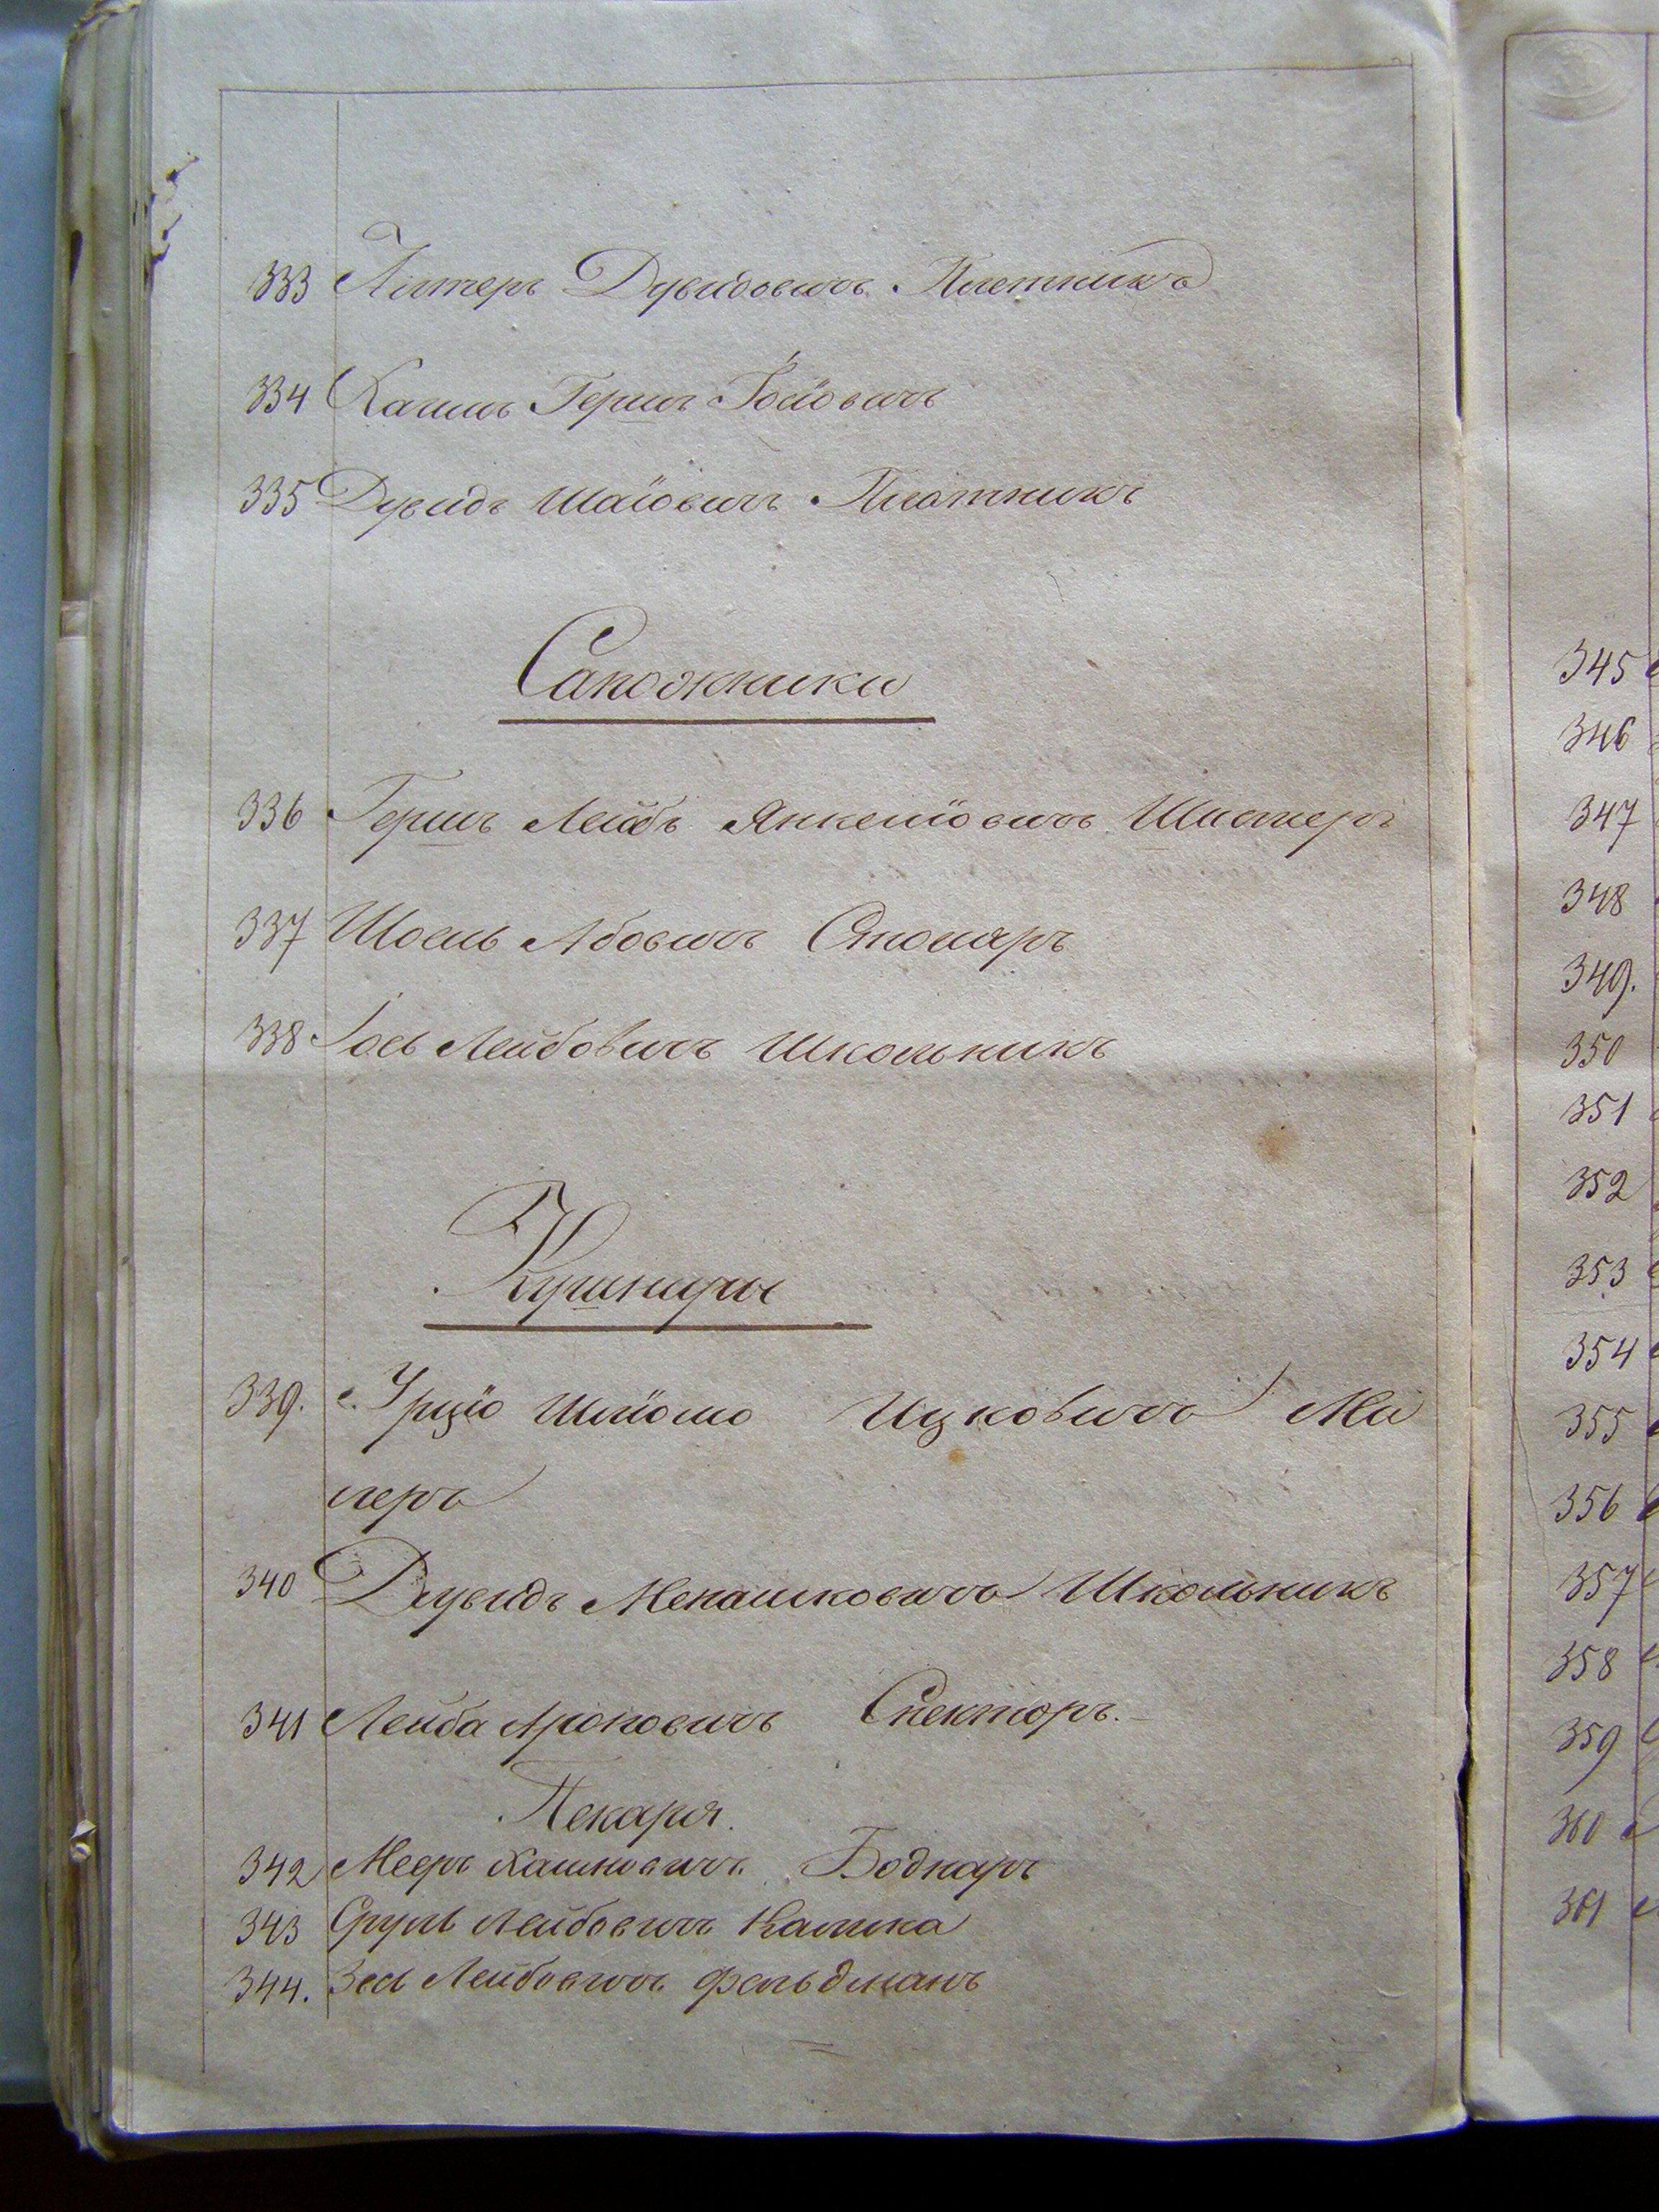 333 Липеръ Дувидовичъ Плотникъ
334 Хаимъ Гершъ Іосіовичъ
335 Дувидъ Шаіовичъ Плотникъ
Сапожники
336 Гершъ Лейбъ Янкеліовичъ Шистеръ
337 Шоель Абовичъ Столяръ
338 Іось Лейбовичъ Школьникъ
Кушниры
339. Урціо Шліомо Ицковичъ Ми
леръ
340 Дувидъ Менашковичъ Школьникъ
341 Лейба Ароновичъ Спекторъ.
Пекаря.
342 Мееръ Хаимовичъ Боднаръ
343 Сруль Лейбовичъ Калика
344. Зесь Лейбовичъ Фельдманъ
345
346
347
348
349.
350
351
352
353
354
355
356
357
358
359
360
361